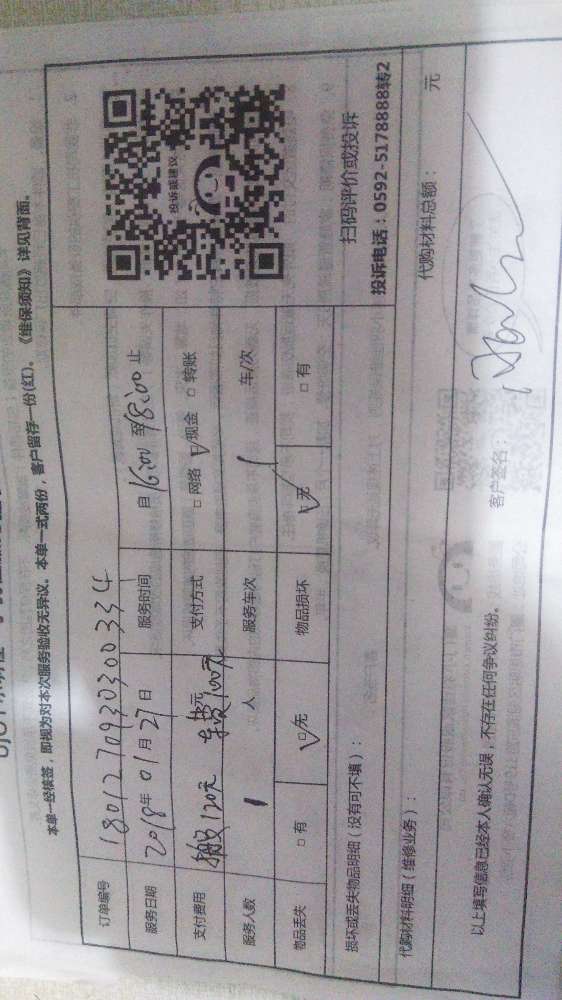 本单一经核签，即视为对本次服务验收无异议。本单一式两份，客户留存一份(红)。《维保须知》详见背面。
订单编号 180127093030033 4
服务日期 2018年01月27日 服务时间 自16:00至18:00止
支付费用 搬120元 车费100元 元 支付方式 □网络 ☑现金 □转账
服务人数 1 人 服务车次 1 车/次
物品丢失 □有 ☑无 物品损坏 ☑无 □有
投诉或建议
扫码评价或投诉
投诉电话：0592-5178888转2
损坏或丢失物品明细（没有可不填）：
代购材料明细（维修业务）： 代购材料总额： 元
以上填写信息已经本人确认无误，不存在任何争议纠纷。 客户签名：